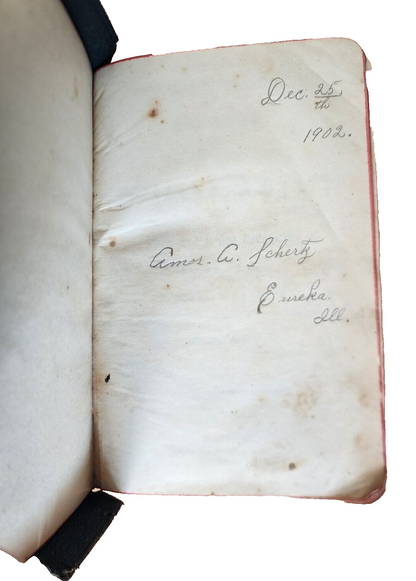 Dec. 25th
1902.
Amos. A. Schertz
Eureka.
Ill.